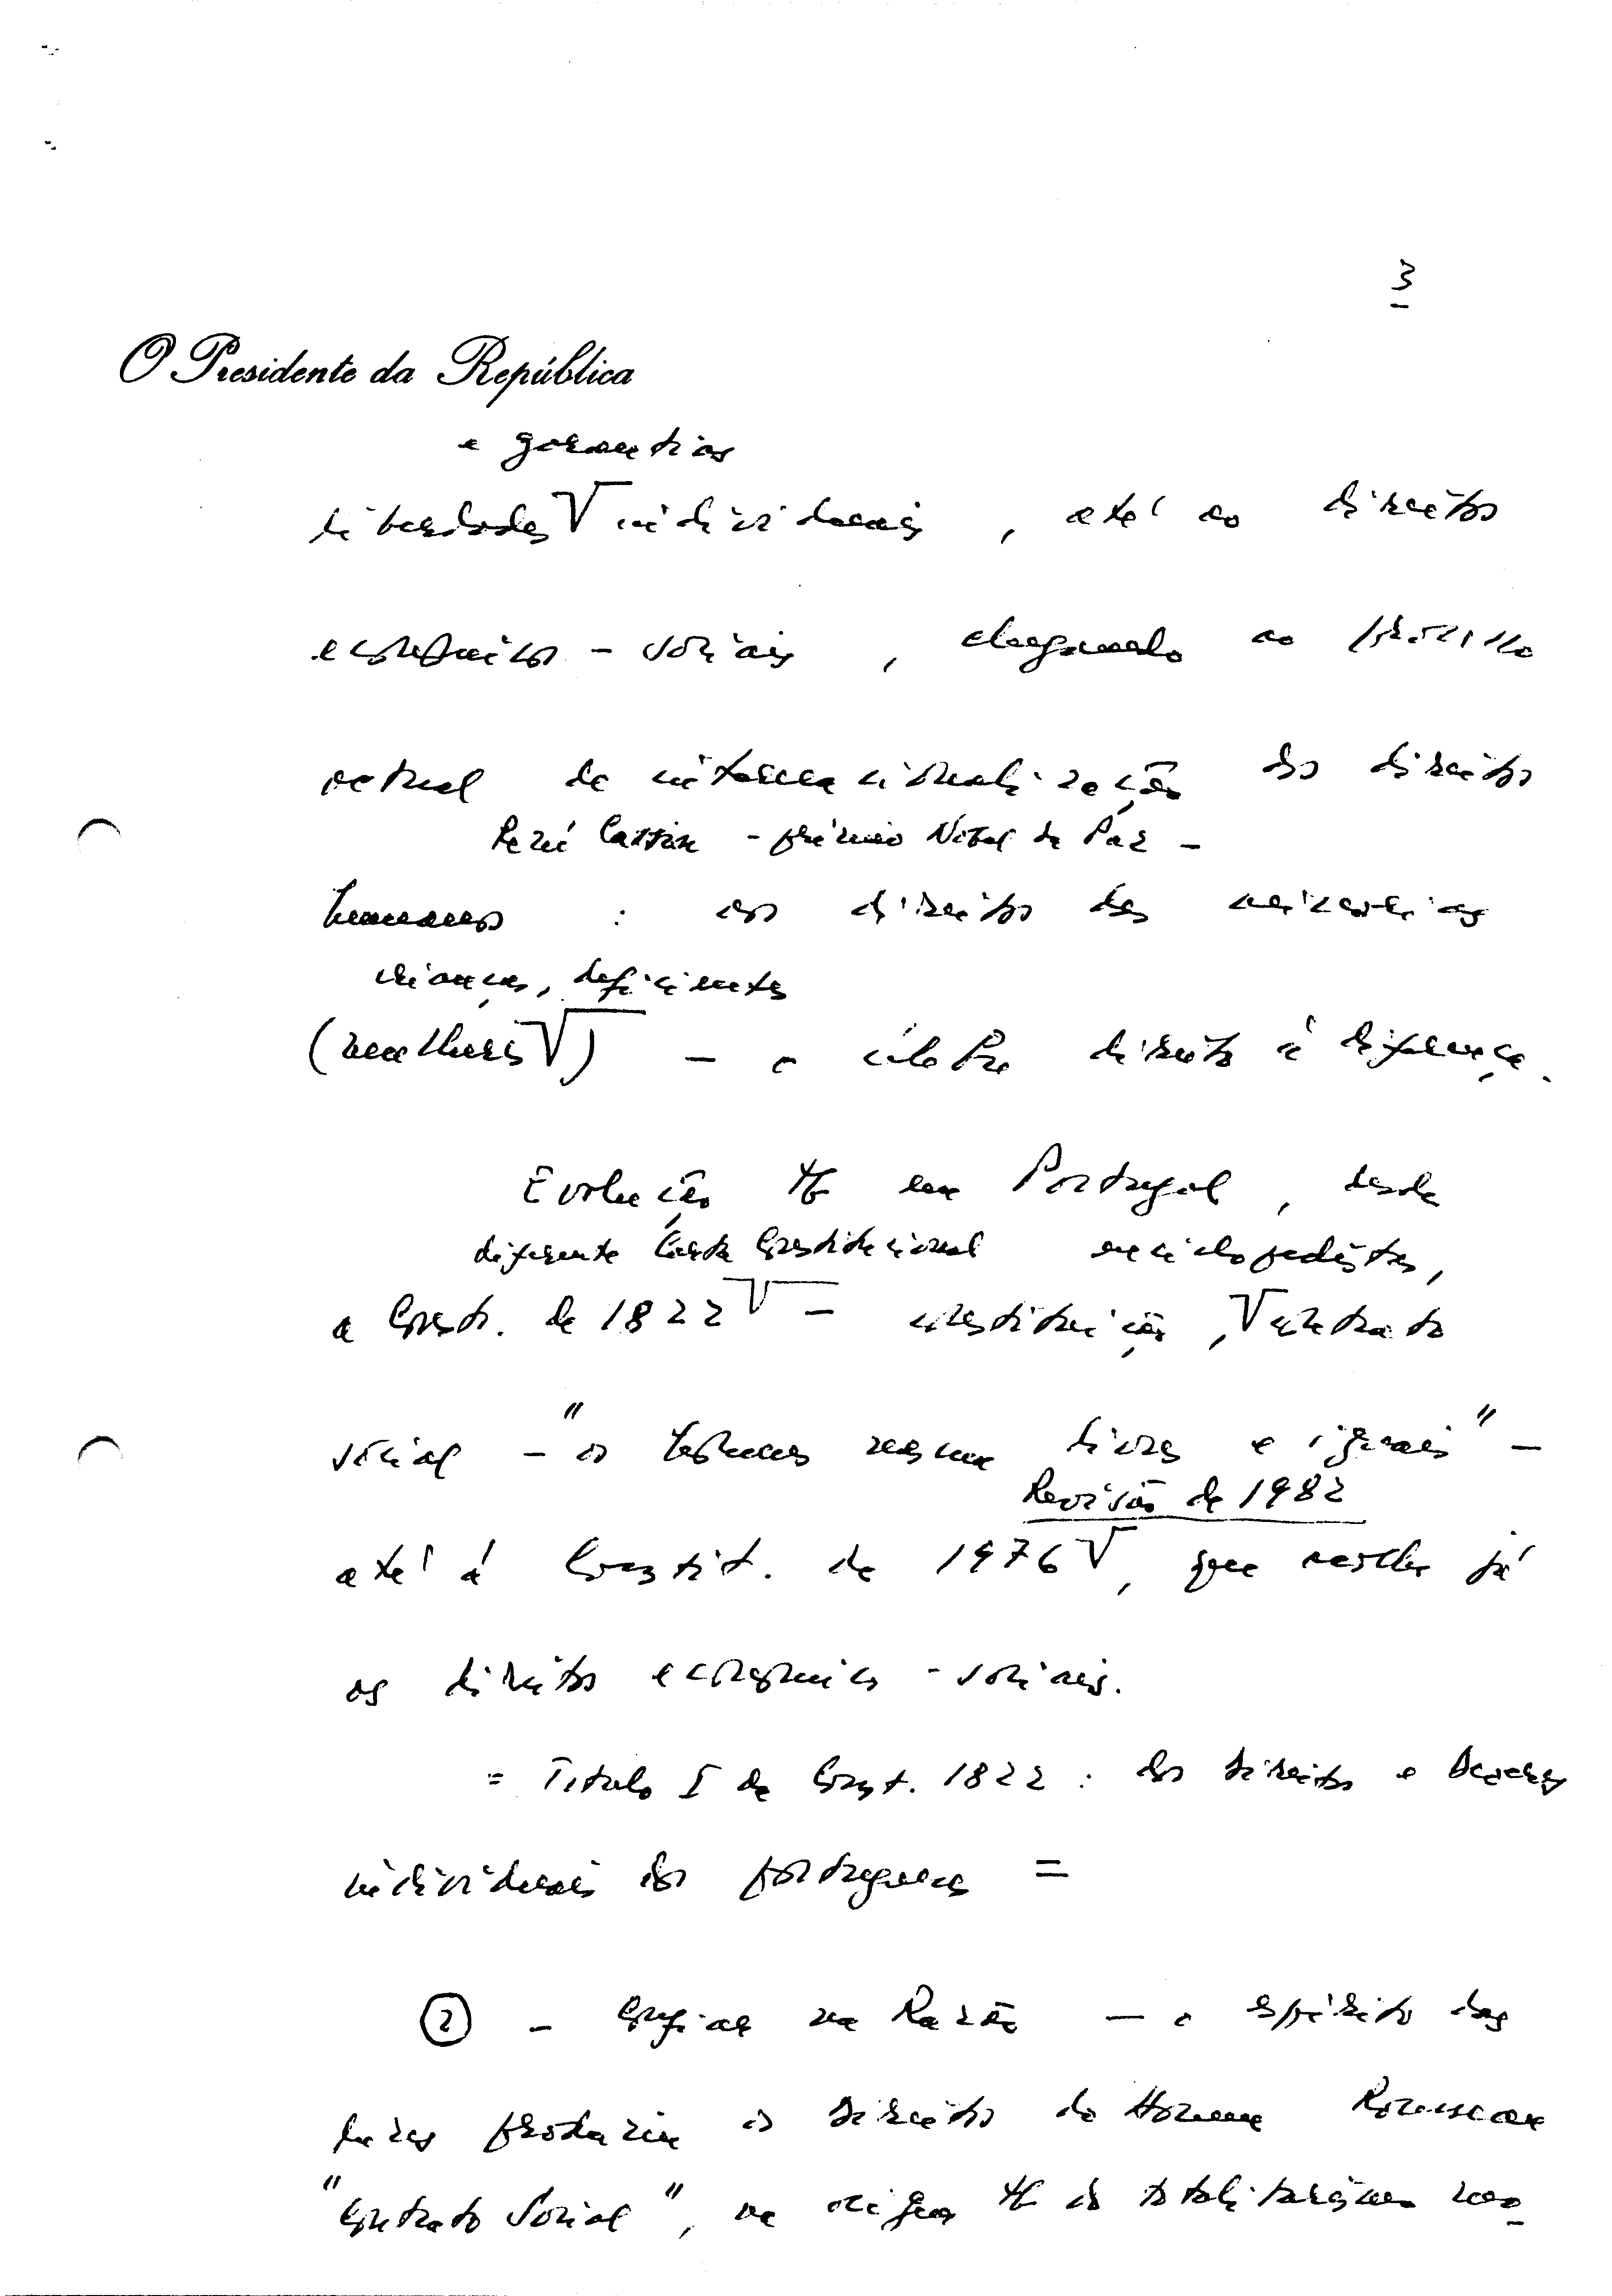 3
O Presidente da República
e garantias
liberdades V individuais, até aos direitos
económicos-sociais, chegando ao processo
actual de internacionalização dos direitos
René Cassin - prémio Nobel da Paz -
humanos : aos direitos das minorias
crianças, deficientes
(mulheres V) - o célebre direito à diferença.
Evolução tb em Portugal, desde
diferente Carta Constitucional enciclopedistas,
a Const. de 1822 V - constituição, V contrato
social - "os homens nascem livres e iguais" -
Revisão de 1982
até à Constit. de 1976 V, que acolhe já
os direitos económicos-sociais.
= Titulo I da Const. 1822 : dos direitos e Deveres
individuais dos portugueses =
② - Confiar na Razão - o espírito das
luzes produziu os direitos do Homem Rousseau
"Contrato Social", na origem tb do totalitarismo mo-